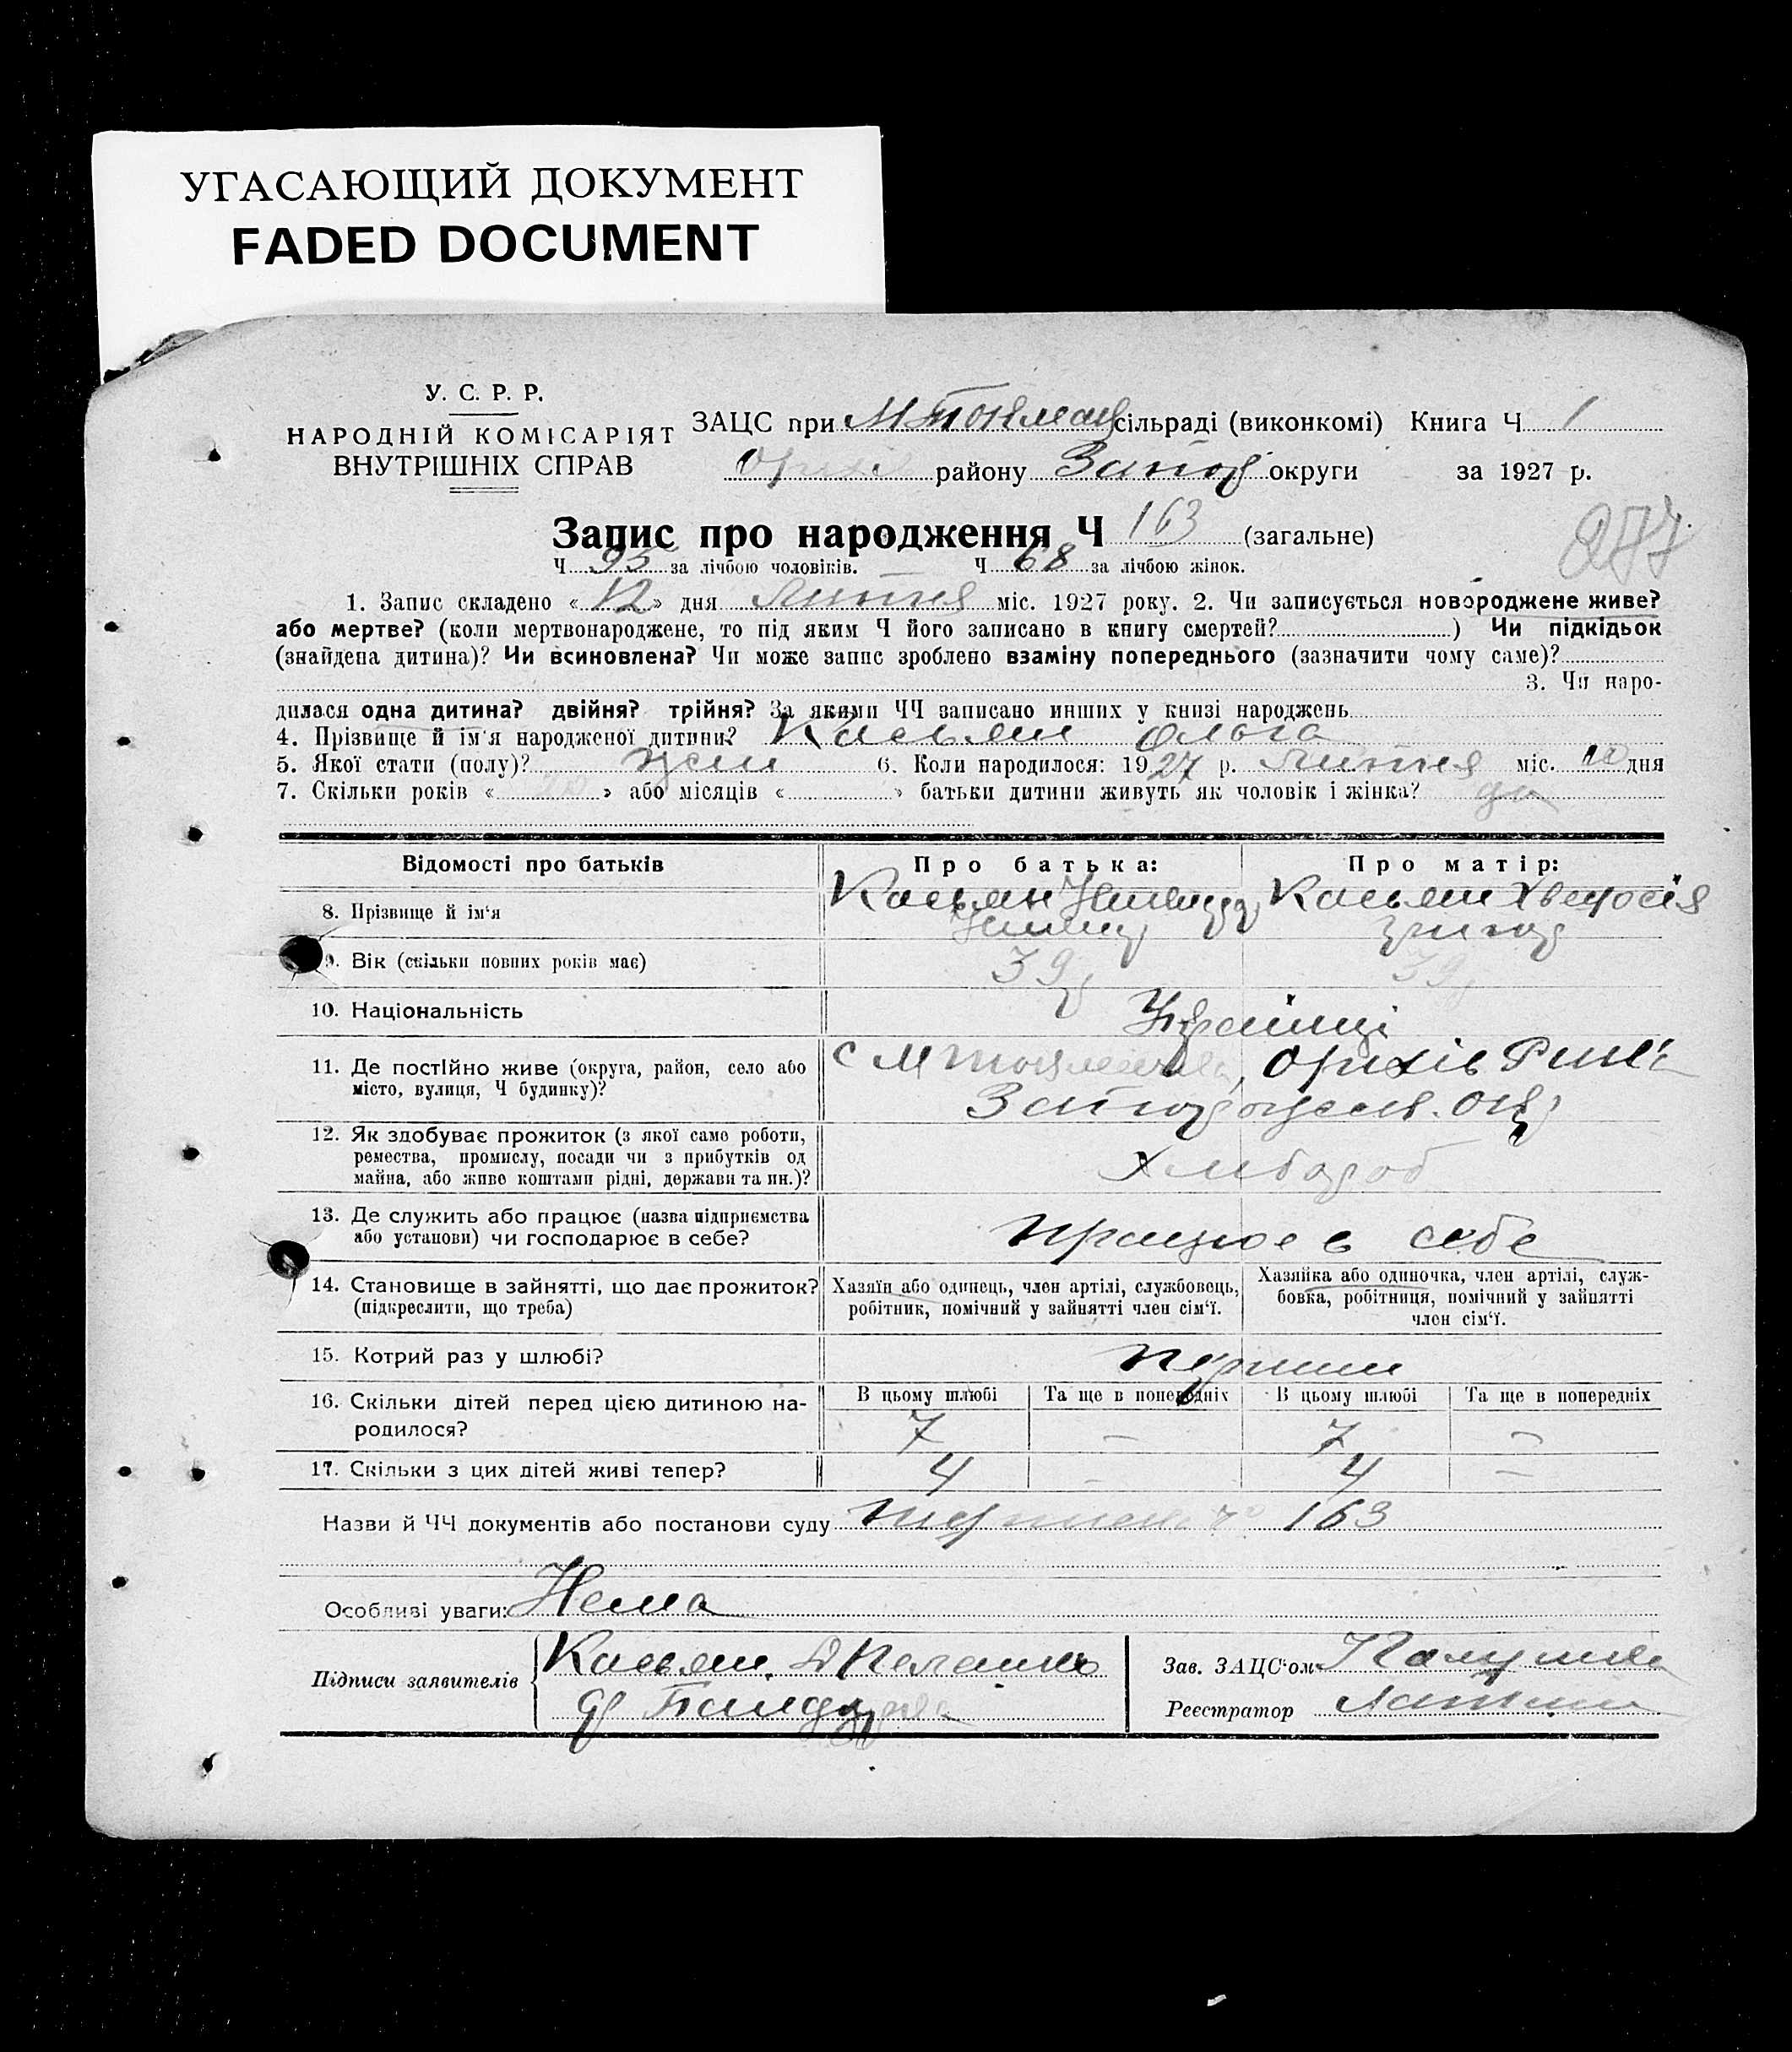 УГАСАЮЩИЙ ДОКУМЕНТ
FADED DOCUMENT
У. С. Р. Р.
НАРОДНІЙ КОМІСАРІЯТ
ВНУТРІШНІХ СПРАВ
ЗАЦС при сільраді (виконкомі) Книга Ч 1
району округи за 1927 р.
Запис про народження Ч 163 (загальне)
277
Ч 95 за лічбою чоловіків. Ч 68 за лічбою жінок.
1. Запис складено «12» дня Липня міс. 1927 року. 2. Чи записується новороджене живе?
або мертве? (коли мертвонароджене, то під яким Ч його записано в книгу смертей? ) Чи підкідьок
(знайдена дитина)? Чи всиновлена? Чи може запис зроблено взаміну попереднього (зазначити чому саме)?
3. Чи наро-
дилася одна дитина? двійня? трійня? За якими ЧЧ записано инших у книзі народжень
4. Прізвище й ім'я народженої дитини? Касьян Ольга
5. Якої стати (полу)? жен 6. Коли народилося: 1927 р. Липня міс. 10 дня
7. Скільки років « 20 » або місяців « » батьки дитини живуть як чоловік і жінка? да
Відомості про батьків Про батька: Про матір:
8. Прізвище й ім'я Касьян Касьян Хведосія
9. Вік (скільки повних років має) 39 39
10. Національність Українці
11. Де постійно живе (округа, район, село або
місто, вулиця, Ч будинку)? Оріхів
12. Як здобуває прожиток (з якої само роботи,
ремества, промислу, посади чи з прибутків од
майна, або живе коштами рідні, держави та ин.)? Хлібороб
13. Де служить або працює (назва підприємства
або установи) чи господарює в себе? працює в себе
14. Становище в зайнятті, що дає прожиток?
(підкреслити, що треба)
Хазяїн або одинець, член артілі, службовець,
робітник, помічний у зайнятті член сім'ї.
Хазяйка або одиночка, член артілі, служ-
бовка, робітниця, помічний у зайнятті
член сім'ї.
15. Котрий раз у шлюбі? перший
В цьому шлюбі Та ще в попередніх В цьому шлюбі Та ще в попередніх
16. Скільки дітей перед цією дитиною на-
родилося? 7 – 7 –
17. Скільки з цих дітей живі тепер? 4 – 4 –
Назви й ЧЧ документів або постанови суду 163
Особливі уваги: Нема
Підписи заявителів Касьян
Зав. ЗАЦС'ом
Реєстратор